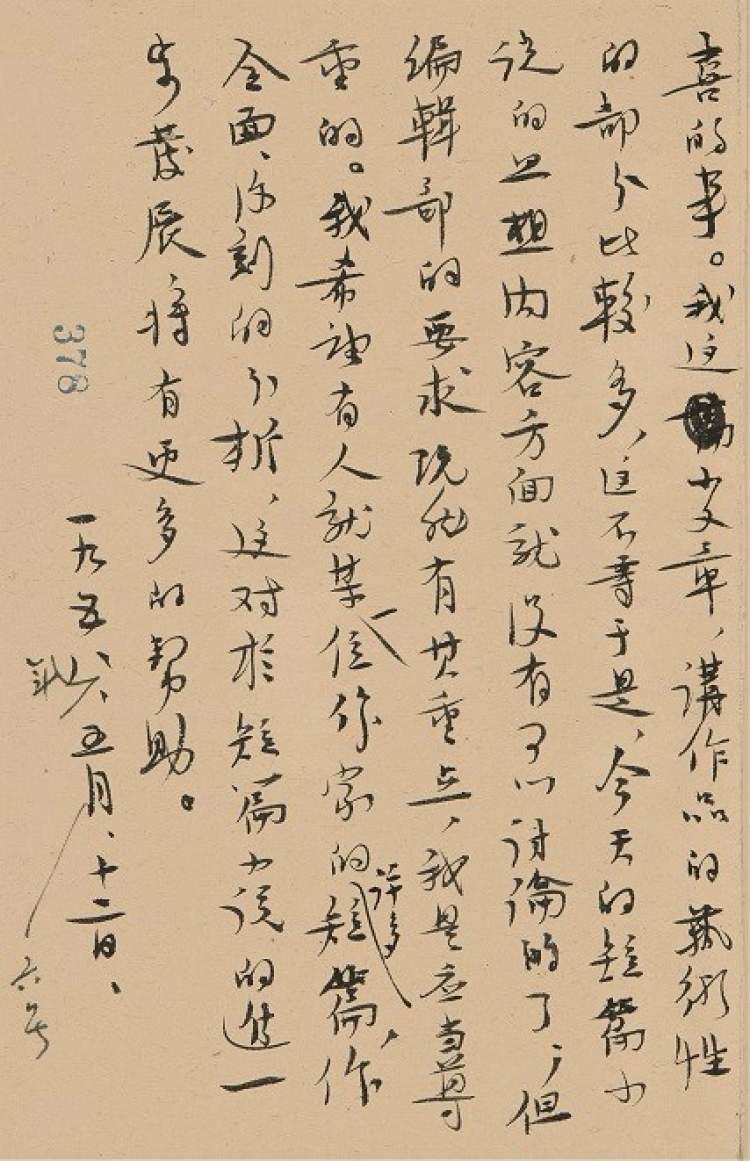 喜的事。我这小文章，講作品的藝術性
的部分比較多，这不等于是，今天的短篇小
说的思想内容方面就没有可以討論的了，但
编輯部的要求既然有其重点，我是应当尊
重的。我希望有人就某一位作家的許多短篇，作
全面、深刻的分析，这对於短篇小说的進一
步發展将有更多的幫助。
一九五八年五月、十二日、
六号
378